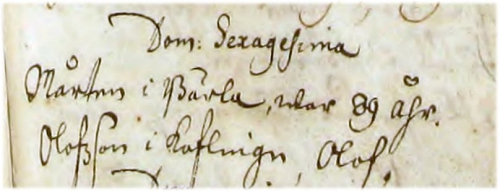 Dom: Sexagesima
Mårten i Bärla, war 89 åhr.
Olofsson i Kaflnign, Olof